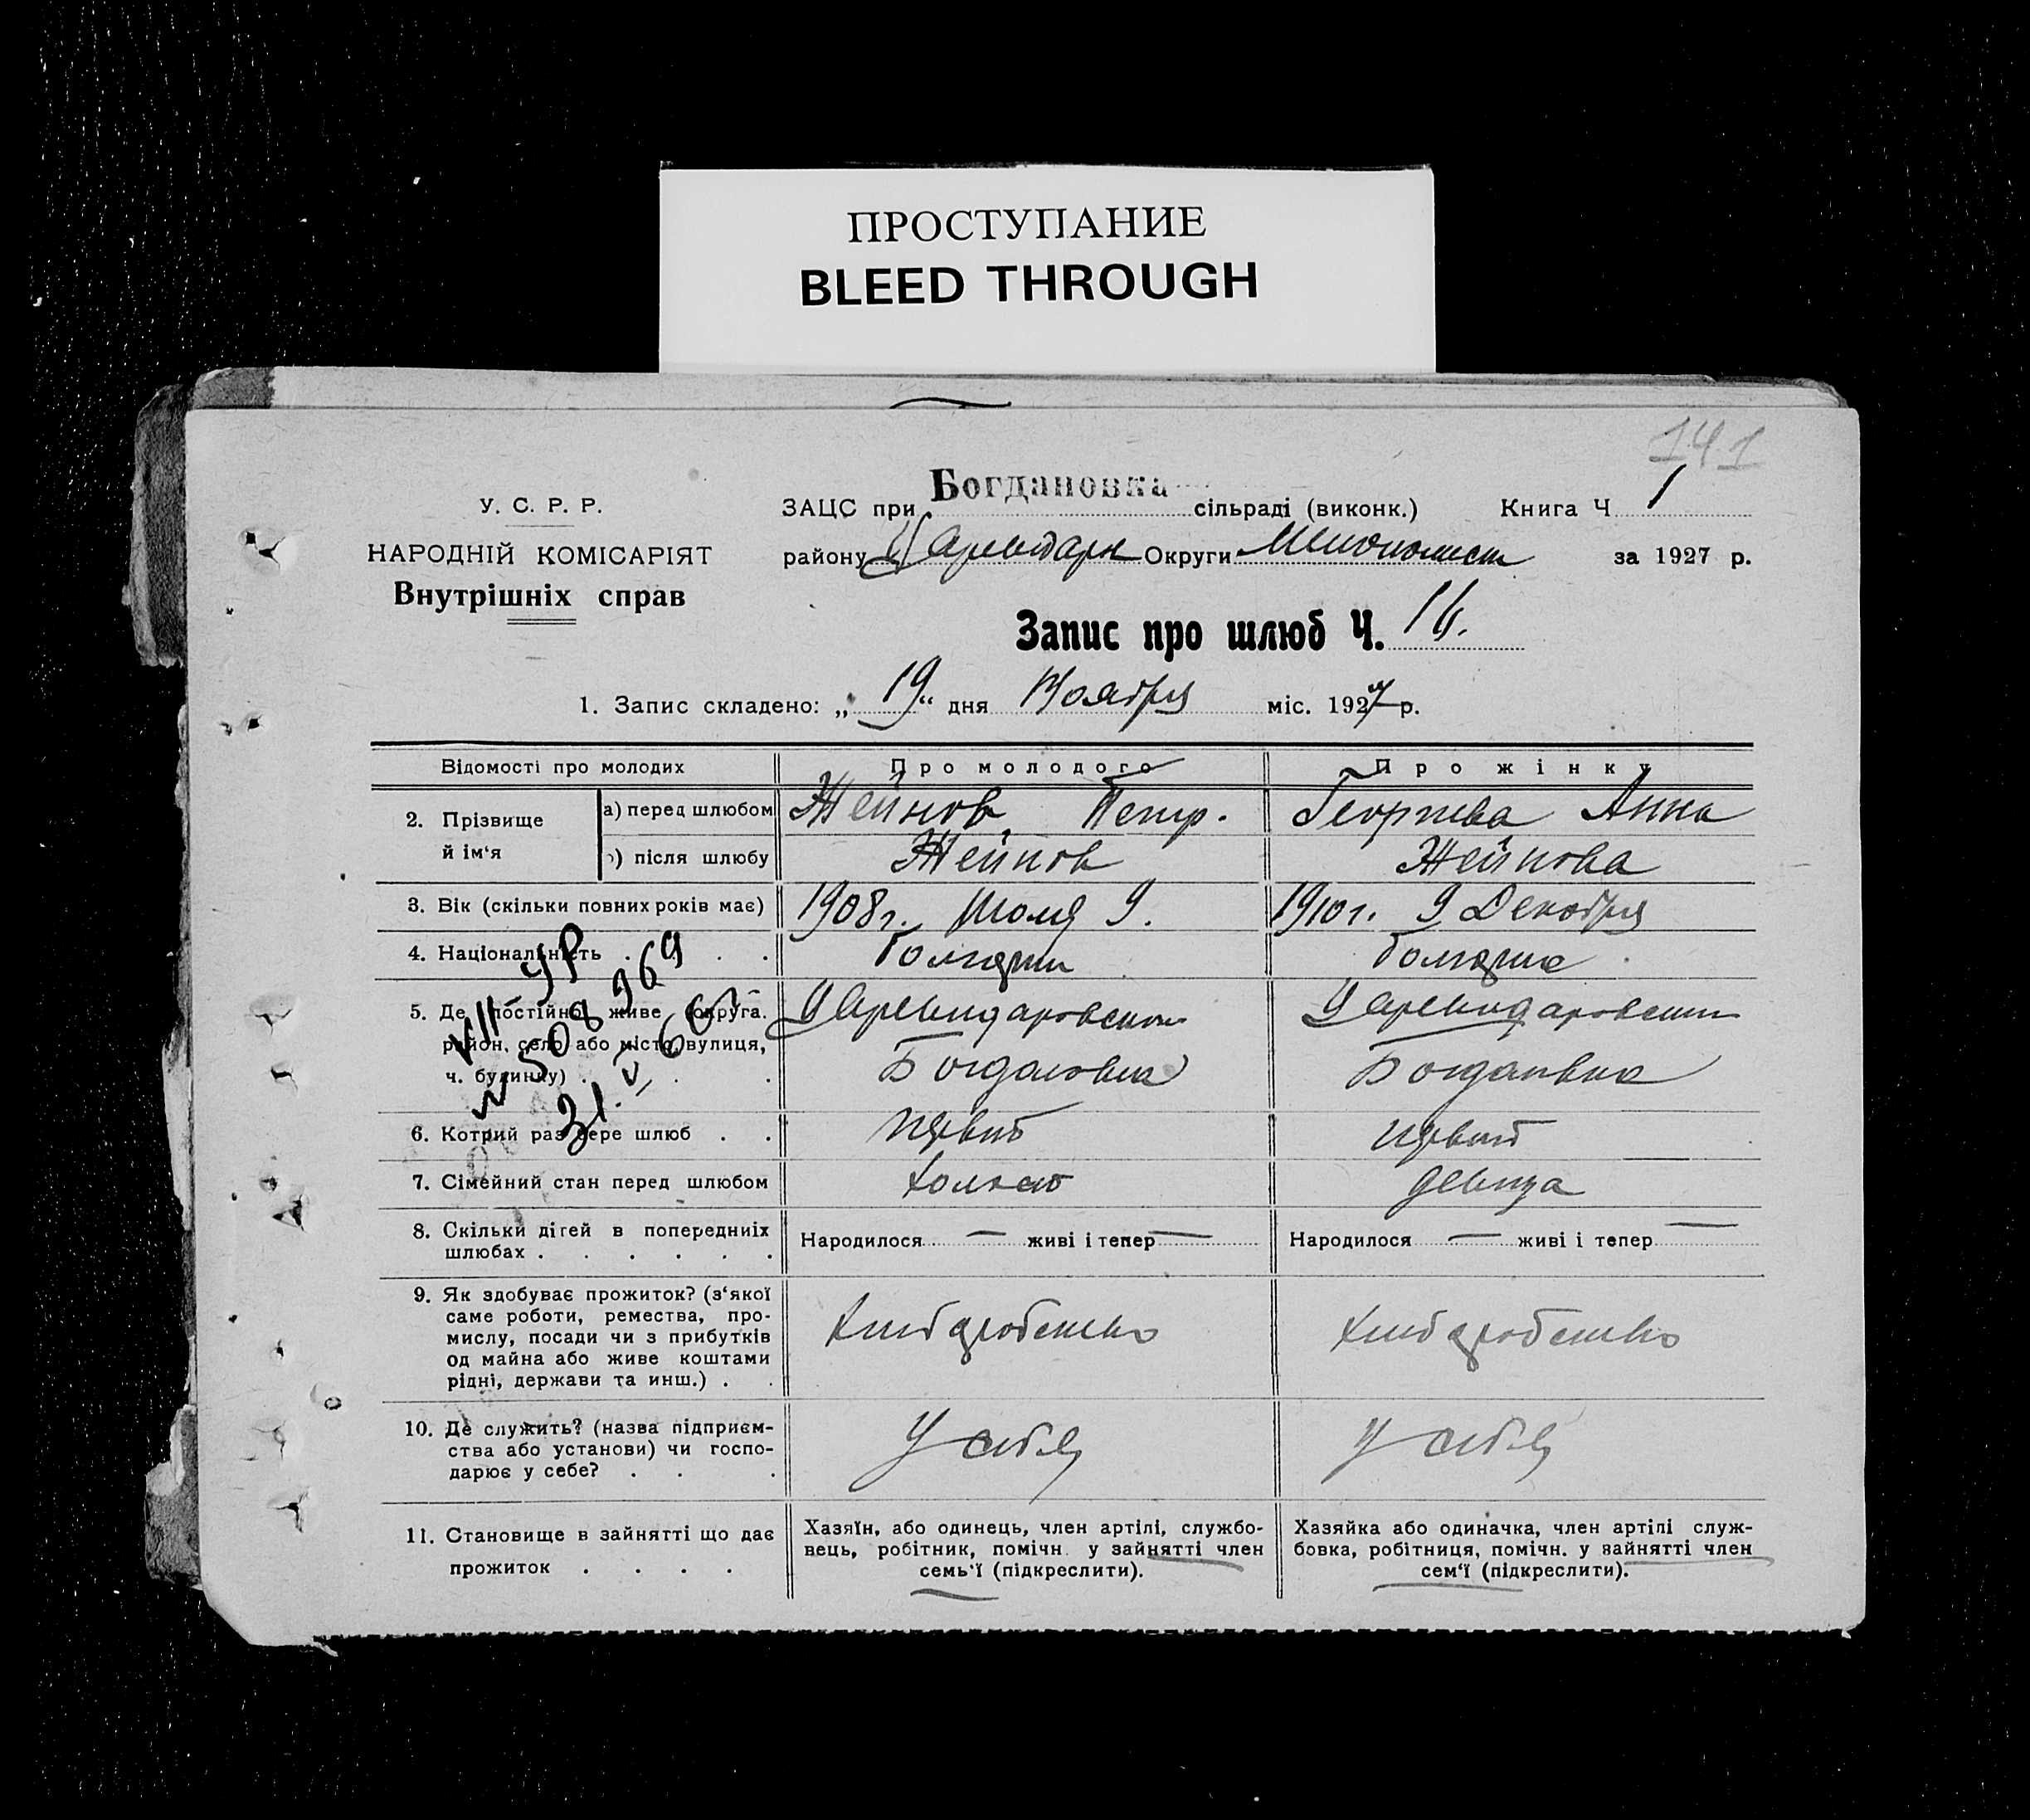 ПРОСТУПАНИЕ
BLEED THROUGH
141
У. С. Р. Р.
НАРОДНІЙ КОМІСАРІЯТ
Внутрішніх справ
ЗАЦС при Богдановка сільраді (виконк.) Книга Ч 1
району Округи за 1927 р.
Запис про шлюб Ч. 16.
1. Запис складено: „19“ дня Ноября міс. 1927 р.
Відомості про молодих Про молодого Про жінку
2. Прізвище й ім‘я а) перед шлюбом Жейнов Петр. Георгиева Анна
б) після шлюбу Жейнов Жейнова
3. Вік (скільки повних років має) 1908г. Июля 9. 1910г. 9 Декабря
4. Національність . . . Болгарин Болгарка
5. Де постійно живе (округа. Цареводаровский Цареводаровский
район, село або місто, вулиця,
ч. будинку) . . . Богдановка Богдановка
VII-УР
№ 508969
6. Котрий раз бере шлюб . . первый первый
7. Сімейний стан перед шлюбом холост девица
8. Скільки дітей в попередніх
шлюбах . . . . . . Народилося — живі і тепер — Народилося — живі і тепер —
9. Як здобуває прожиток? (з‘якої
саме роботи, ремества, про-
мислу, посади чи з прибутків
од майна або живе коштами
рідні, держави та инш.) . . Хлебдробство Хлебдробство
10. Де служить? (назва підприєм-
ства або установи) чи госпо-
дарює у себе? . . . У себя У себя
11. Становище в зайнятті що дає
прожиток . . . .
Хазяїн, або одинець, член артілі, службо-
вець, робітник, помічн. у зайнятті член
семь‘ї (підкреслити).
Хазяйка або одиначка, член артілі служ-
бовка, робітниця, помічн. у зайнятті член
сем‘ї (підкреслити).